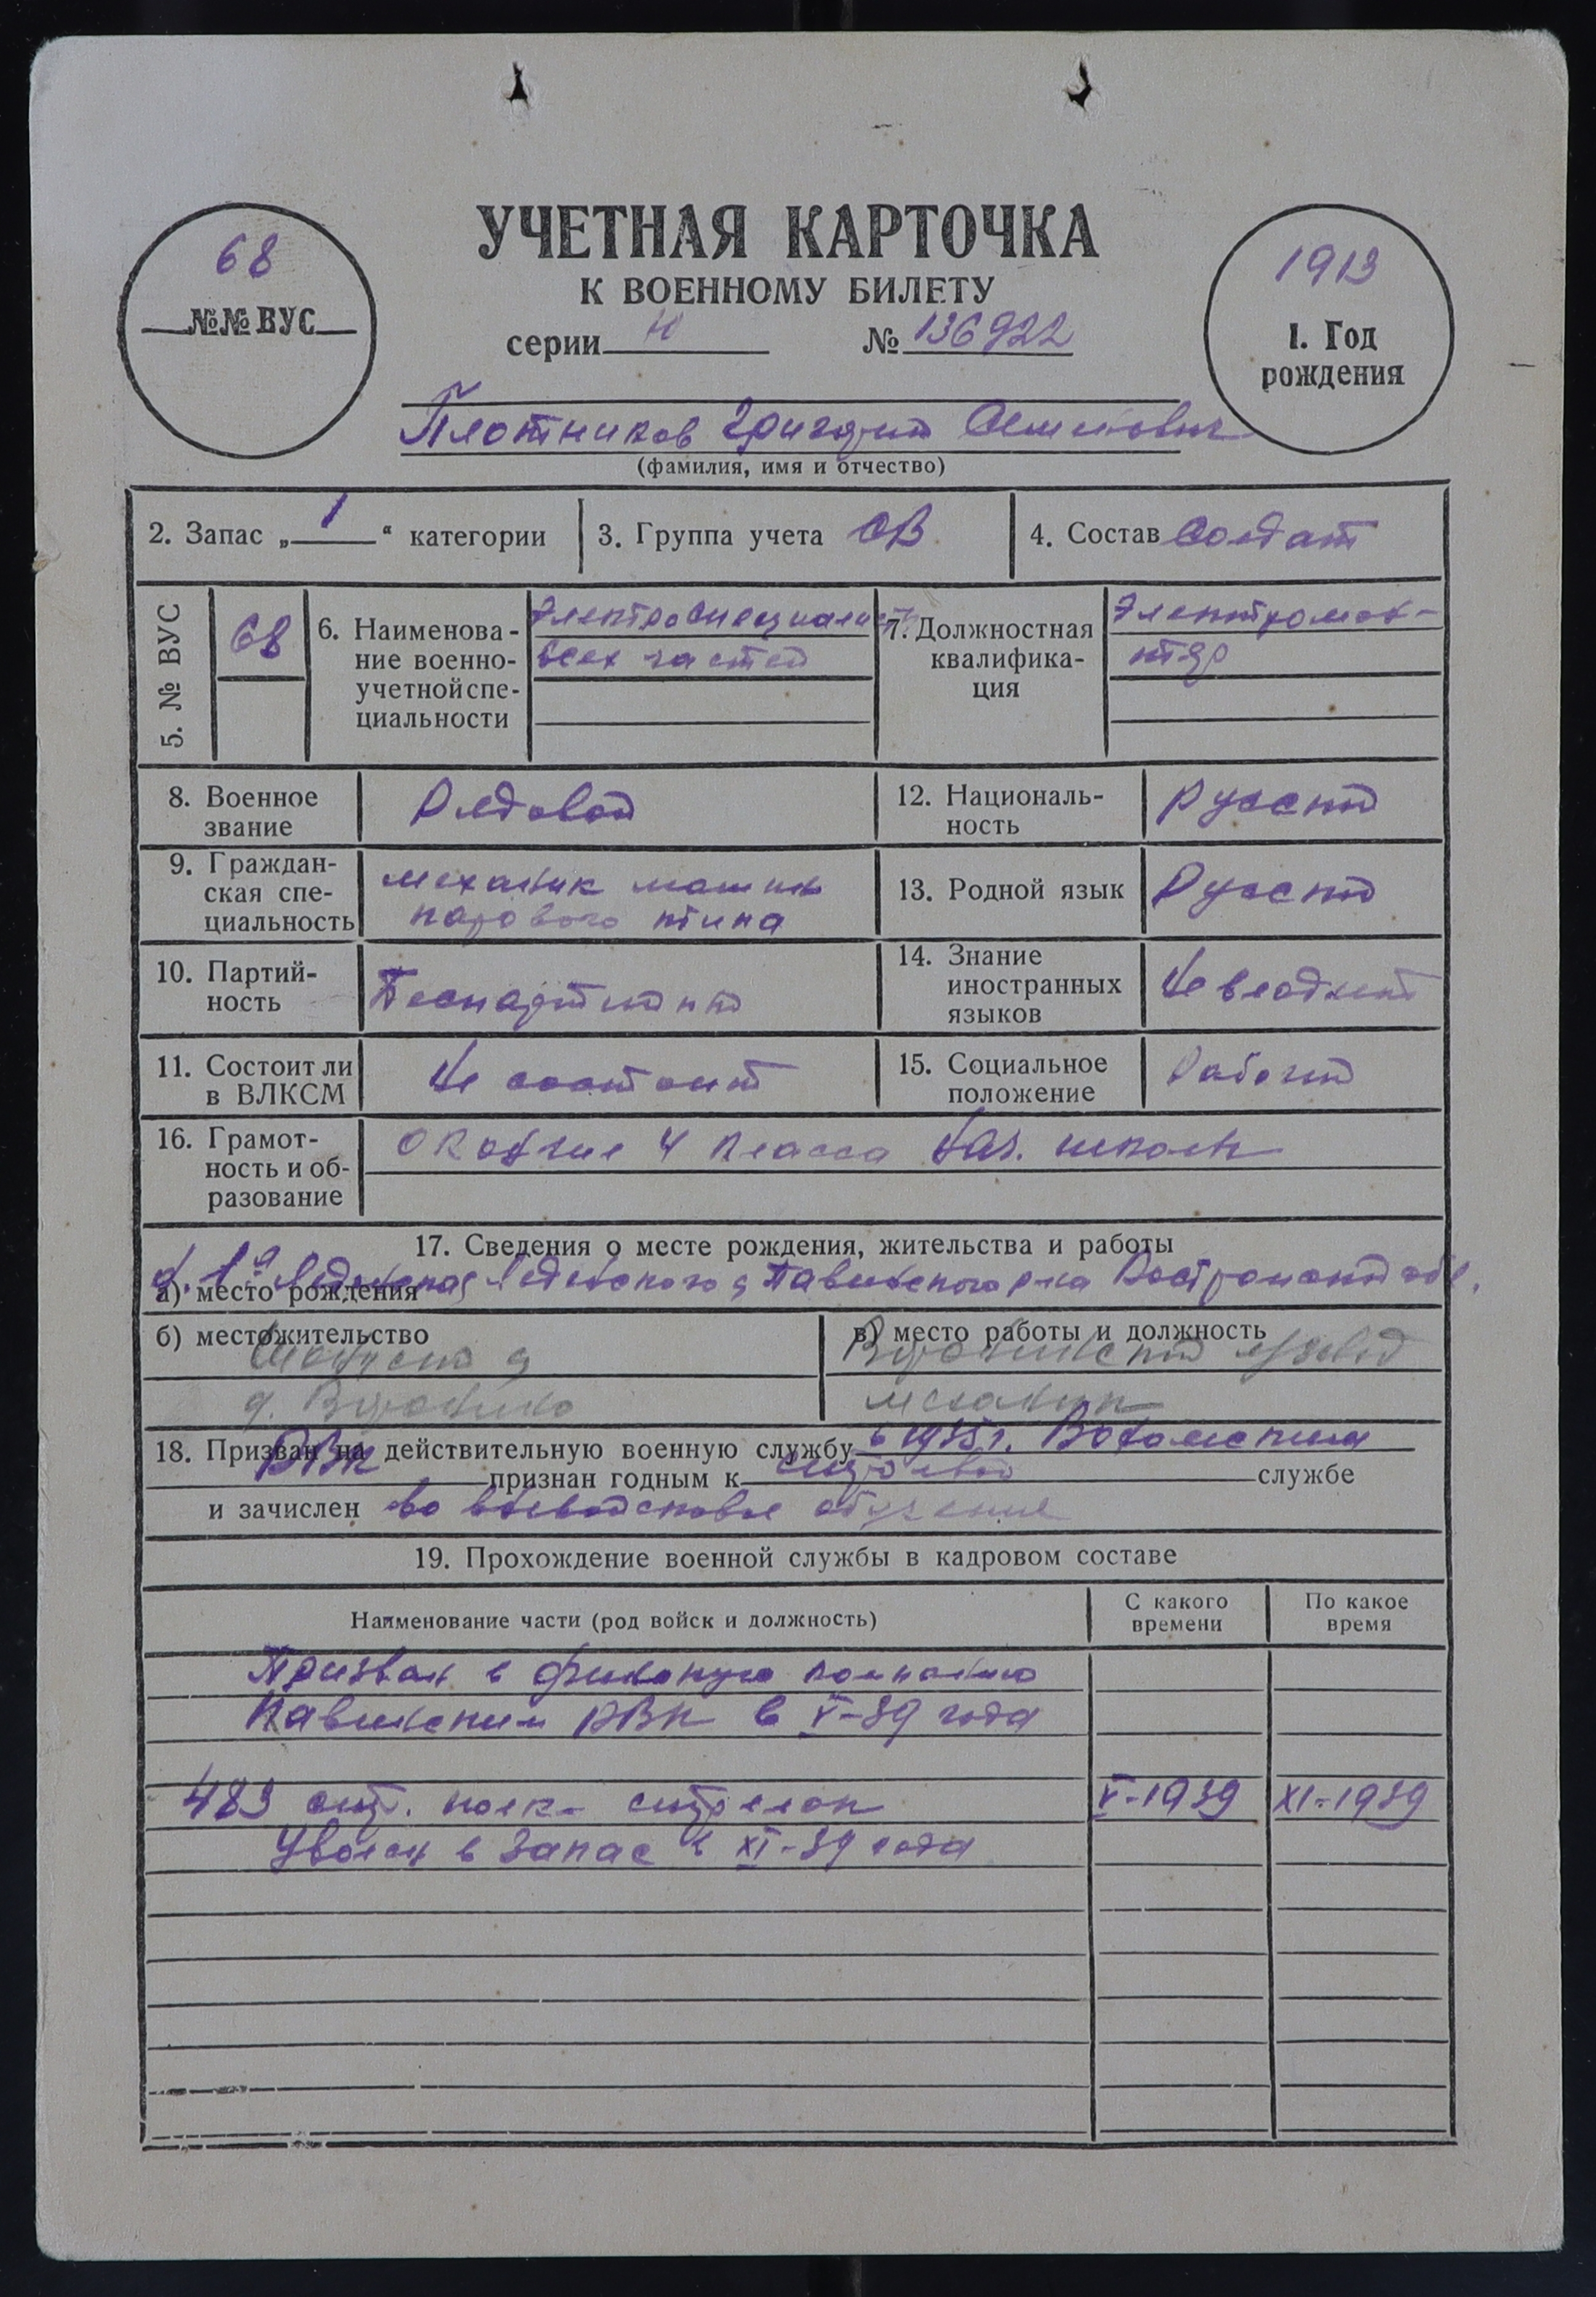 68
№№ ВУС
УЧЕТНАЯ КАРТОЧКА
К ВОЕННОМУ БИЛЕТУ
серии Н № 136922
1913
1. Год
рождения
Плотников Григорий
(фамилия, имя и отчество)
2. Запас „1“ категории
3. Группа учета СВ
4. Состав Солдат
5. № ВУС
68
6. Наименова-
ние военно-
учетной спе-
циальности
Электроспециалист
всех частей
7. Должностная
квалифика-
ция
Электромон-
тер
8. Военное
звание
Рядовой
12. Националь-
ность
Русский
9. Граждан-
ская спе-
циальность
механик машин
парового типа
13. Родной язык
Русский
10. Партий-
ность
Беспартийный
14. Знание
иностранных
языков
Не владеет
11. Состоит ли
в ВЛКСМ
Не состоит
15. Социальное
положение
Рабочий
16. Грамот-
ность и об-
разование
окончил 4 класса нач. школы
17. Сведения о месте рождения, жительства и работы
а) место рождения
Павинского р-на Костромской обл.
б) местожительство
в) место работы и должность
механик
18. Призван на действительную военную службу в 1935 г. Вохомским
РВК признан годным к строевой службе
и зачислен во вневойсковое обучение
19. Прохождение военной службы в кадровом составе
Наименование части (род войск и должность)
С какого
времени
По какое
время
Призван в финскую компанию
Павинским РВК в V-39 года
483 стр. полк - стрелок V-1939 XI-1939
Уволен в запас в XI-39 года